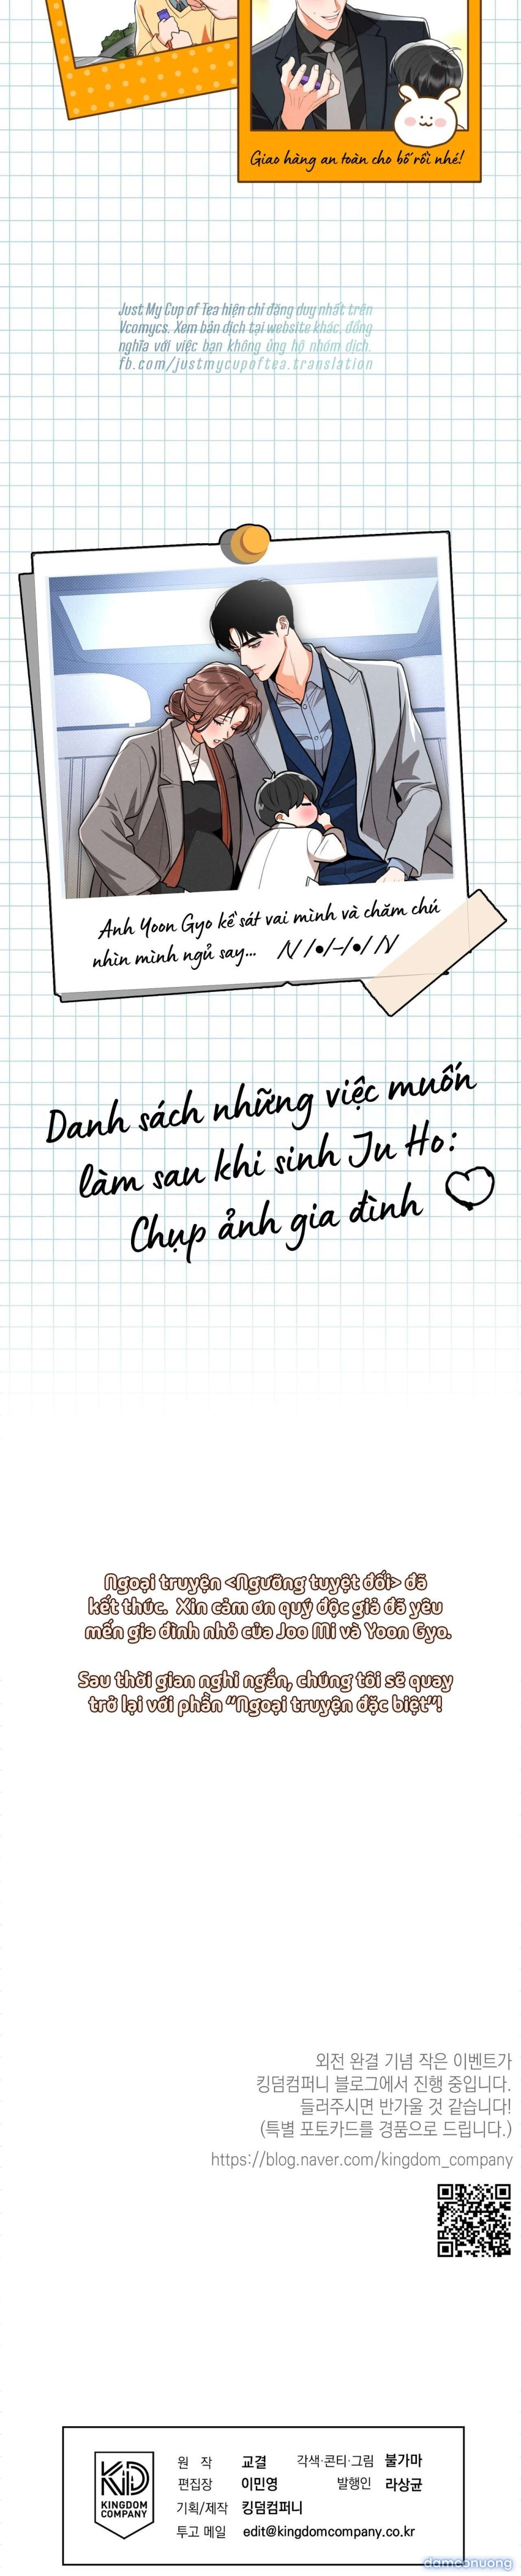 Giao hàng an toàn cho bố rồi nhé!
Just My Cup of Tea hiện chỉ đăng duy nhất trên
Vcomycs. Xem bản dịch tại website khác, đồng
nghĩa với việc bạn không ủng hộ nhóm dịch.
fb.com/justmycupoftea.translation
Anh Yoon Gyo kề sát vai mình và chăm chú
nhìn mình ngủ say... /\/ /•/-/•/ /\/
Danh sách những việc muốn
làm sau khi sinh Ju Ho:
Chụp ảnh gia đình
Ngoại truyện <Ngưỡng tuyệt đối> đã
kết thúc. Xin cảm ơn quý độc giả đã yêu
mến gia đình nhỏ của Joo Mi và Yoon Gyo.
Sau thời gian nghỉ ngắn, chúng tôi sẽ quay
trở lại với phần "Ngoại truyện đặc biệt"!
외전 완결 기념 작은 이벤트가
킹덤컴퍼니 블로그에서 진행 중입니다.
들러주시면 반가울 것 같습니다!
(특별 포토카드를 경품으로 드립니다.)
https://blog.naver.com/kingdom_company
KD
KINGDOM
COMPANY
원 작 교결 각색·콘티·그림 불가마
편집장 이민영 발행인 라상균
기획/제작 킹덤컴퍼니
투고 메일 edit@kingdomcompany.co.kr
damconuong